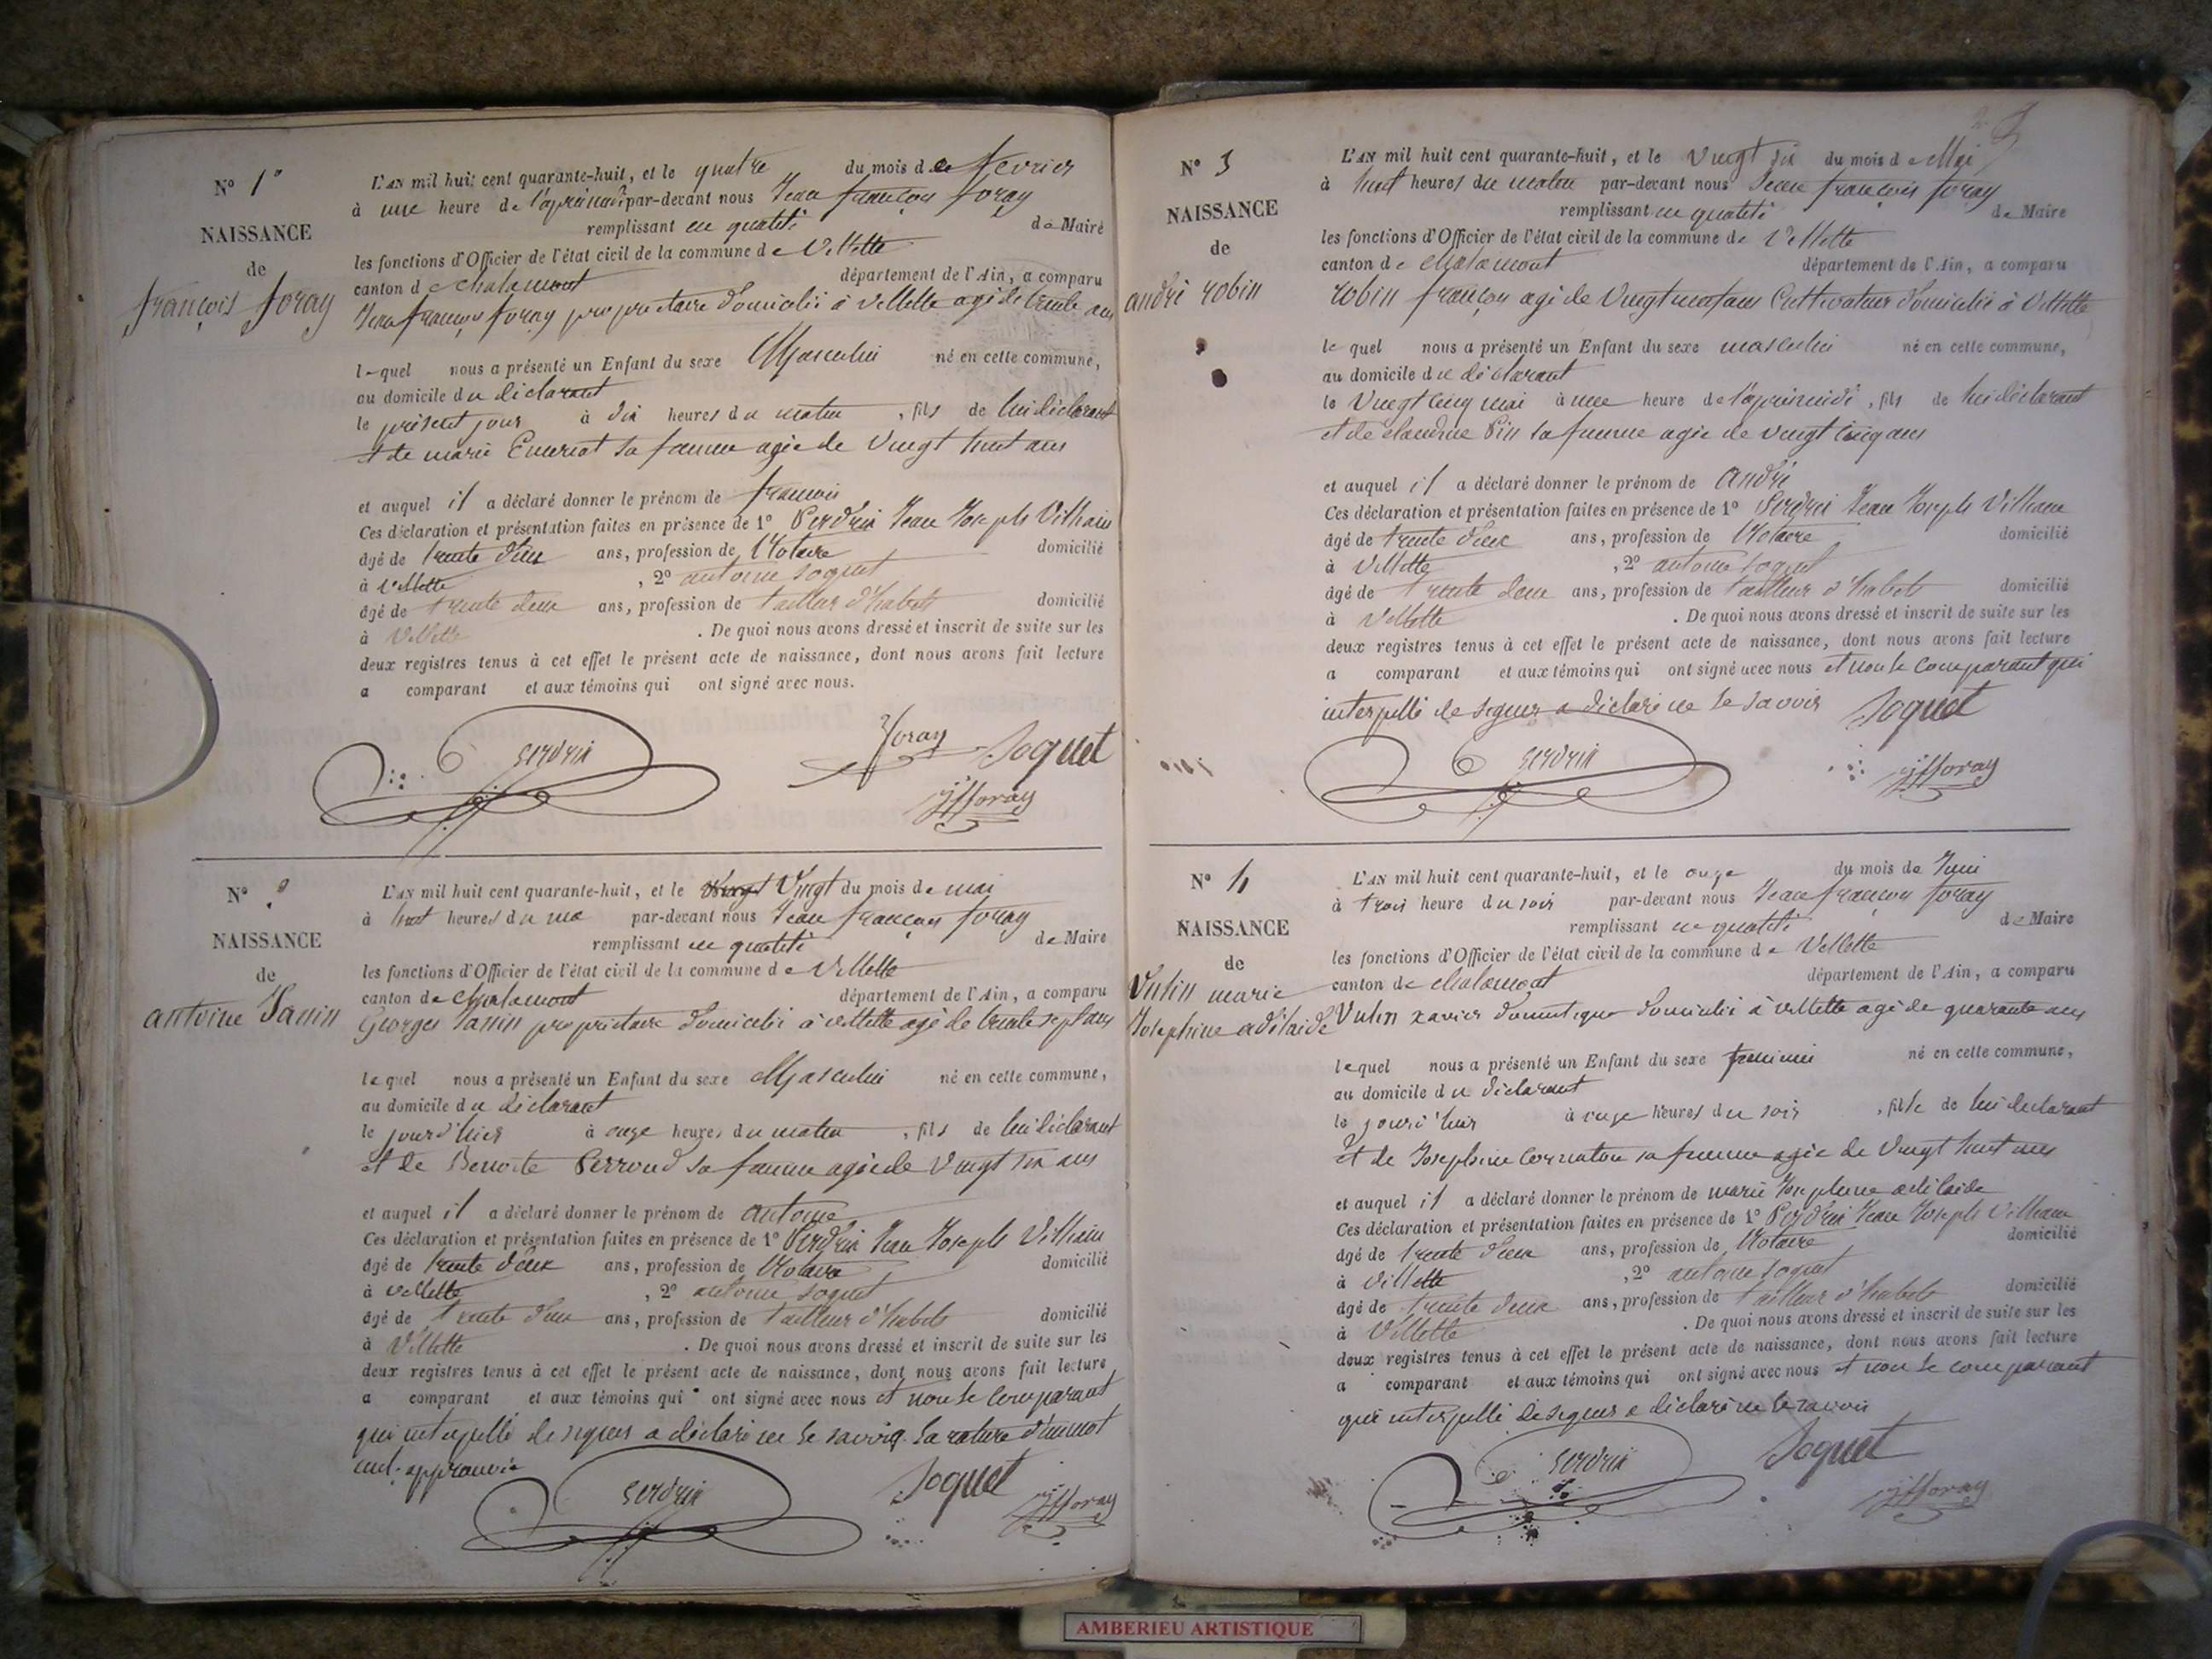 N° 1°
NAISSANCE
de
françois foray
L'AN mil huit cent quarante-huit, et le quatre du mois de fevrier
à une heure de l'aprèsmidi par-devant nous Jean françois foray
remplissant en qualité de Maire
les fonctions d'Officier de l'état civil de la commune de Villette
canton de chalamont département de l'Ain, a comparu
Jean françois foray propriétaire domicilié à Villette agé de trente ans
lequel nous a présenté un Enfant du sexe Masculin né en cette commune,
au domicile du déclarant
le présent jour à dix heures du matin, fils de lui déclarant
et de marie Emeriat sa femme agée de Vingt huit ans
et auquel il a déclaré donner le prénom de françois
Ces déclaration et présentation faites en présence de 1° Perdrix Jean Joseph Vilhaine
âgé de trente deux ans, profession de Notaire domicilié
à Villette, 2° antoine soquet
âgé de trente deux ans, profession de tailleur d'habits domicilié
à Villette. De quoi nous avons dressé et inscrit de suite sur les
deux registres tenus à cet effet le présent acte de naissance, dont nous avons fait lecture
a comparant et aux témoins qui ont signé avec nous.
Perdrix foray Soquet
jffforay
N° 2
NAISSANCE
de
antoine Janin
L'AN mil huit cent quarante-huit, et le Vingt Vingt du mois de mai
à huit heures du ma par-devant nous Jean françois foray
remplissant en qualité de Maire
les fonctions d'Officier de l'état civil de la commune de Villette
canton de chalamont département de l'Ain, a comparu
Georges Janin propriétaire domicilié à villette agé de trente sept ans
lequel nous a présenté un Enfant du sexe Masculin né en cette commune,
au domicile du déclarant
le jour d'hier à onze heures du matin, fils de lui déclarant
et de Benoite Perroud sa femme agée de Vingt six ans
et auquel il a déclaré donner le prénom de antoine
Ces déclaration et présentation faites en présence de 1° Perdrix Jean Joseph Vilhaine
âgé de trente deux ans, profession de Notaire domicilié
à villette, 2° antoine soquet
âgé de trente deux ans, profession de tailleur d'habits domicilié
à Villette. De quoi nous avons dressé et inscrit de suite sur les
deux registres tenus à cet effet le présent acte de naissance, dont nous avons fait lecture
a comparant et aux témoins qui ont signé avec nous et non le comparant
qui interpellé de signer a déclaré ne le savoir. La rature d'un mot
nul. approuvée
Perdrix Soquet jfforay
N° 3
NAISSANCE
de
andré robin
L'AN mil huit cent quarante-huit, et le Vingt six du mois de Mai
à huit heures du matin par-devant nous Jean françois foray
remplissant en qualité de Maire
les fonctions d'Officier de l'état civil de la commune de Villette
canton de chalamont département de l'Ain, a comparu
robin françois agé de Vingt neuf ans Cultivateur domicilié à Villette
lequel nous a présenté un Enfant du sexe masculin né en cette commune,
au domicile du déclarant
le Vingt cinq mai à une heure de l'aprèsmidi, fils de lui déclarant
et de claudine Pin sa femme agée de vingt cinq ans
et auquel il a déclaré donner le prénom de André
Ces déclaration et présentation faites en présence de 1° Perdrix Jean Joseph Vilhaine
âgé de trente deux ans, profession de Notaire domicilié
à Villette, 2° antoine soquet
âgé de trente deux ans, profession de tailleur d'habits domicilié
à Villette. De quoi nous avons dressé et inscrit de suite sur les
deux registres tenus à cet effet le présent acte de naissance, dont nous avons fait lecture
a comparant et aux témoins qui ont signé avec nous et non le comparant qui
interpellé de signer a déclaré ne le savoir Soquet
Perdrix jfforay
N° 4
NAISSANCE
de
Vulin marie
Josephine adélaïde
L'AN mil huit cent quarante-huit, et le onze du mois de Juin
à trois heure du soir par-devant nous Jean françois foray
remplissant en qualité de Maire
les fonctions d'Officier de l'état civil de la commune de Villette
canton de chalamont département de l'Ain, a comparu
Vulin xavier domestique domicilié à villette agé de quarante ans
lequel nous a présenté un Enfant du sexe feminin né en cette commune,
au domicile du déclarant
le jour d'hier à onze heures du soir, fille de lui déclarant
et de Josephine sa femme agée de Vingt huit ans
et auquel il a déclaré donner le prénom de marie Josephine adélaïde
Ces déclaration et présentation faites en présence de 1° Perdrix Jean Joseph Vilhaine
âgé de trente deux ans, profession de Notaire domicilié
à Villette, 2° antoine soquet
âgé de trente deux ans, profession de tailleur d'habits domicilié
à Villette. De quoi nous avons dressé et inscrit de suite sur les
deux registres tenus à cet effet le présent acte de naissance, dont nous avons fait lecture
a comparant et aux témoins qui ont signé avec nous et non le comparant
qui interpellé de signer a déclaré ne le savoir
Perdrix Soquet
jfforay
AMBERIEU ARTISTIQUE